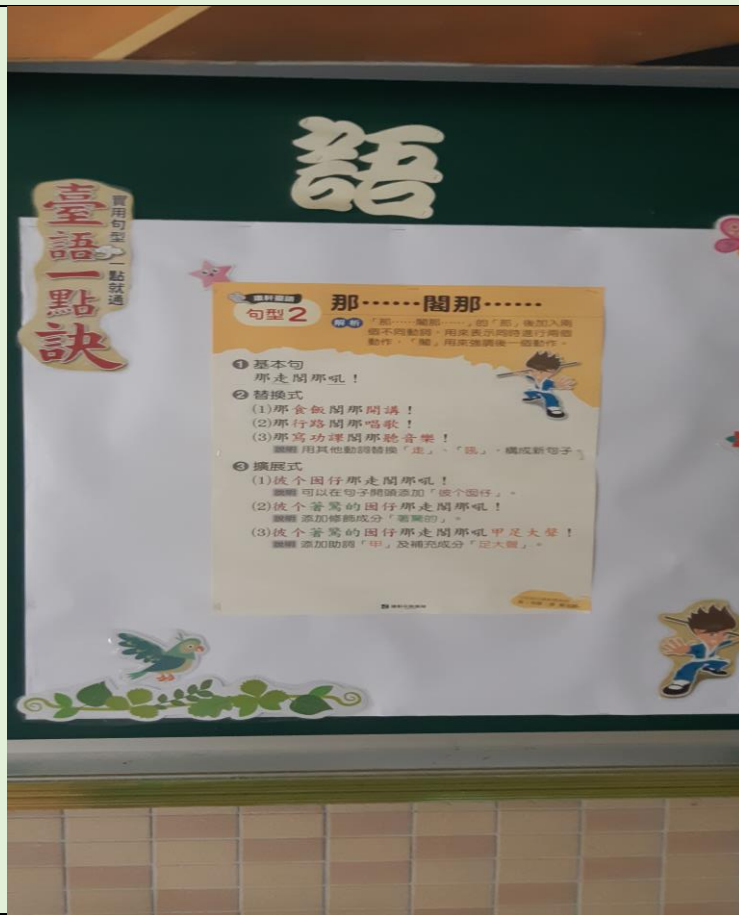 語
臺語一點訣
實用句型一點就通
句型2
那……閣那……
解析 「那……閣那……」的「那」後加入兩
個不同動詞，用來表示同時進行兩個
動作，「閣」用來強調後一個動作。
❶ 基本句
那走閣那吼！
❷ 替換式
(1)那食飯閣那開講！
(2)那行路閣那唱歌！
(3)那寫功課閣那聽音樂！
說明 用其他動詞替換「走」、「吼」，構成新句子。
❸ 擴展式
(1)彼个囡仔那走閣那吼！
說明 可以在句子開頭添加「彼个囡仔」。
(2)彼个著驚的囡仔那走閣那吼！
說明 添加修飾成分「著驚的」。
(3)彼个著驚的囡仔那走閣那吼甲足大聲！
說明 添加助詞「甲」及補充成分「足大聲」。